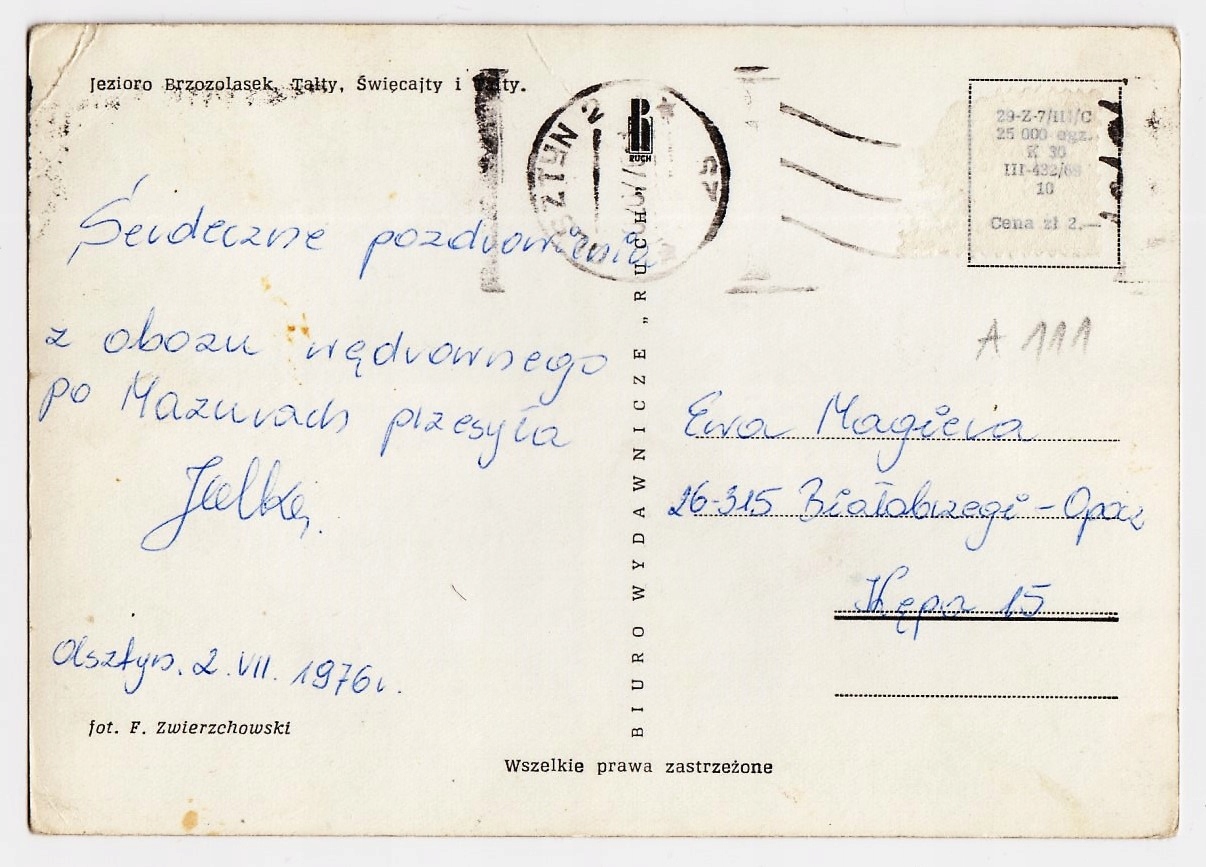 Jezioro Brzozolasek, Tałty, Święcajty i
Serdeczne pozdrowienia
z obozu wędrownego
po Mazurach przesyła
Olsztyn. 2.VII. 1976r.
fot. F. Zwierzchowski
BIURO WYDAWNICZE „RUCH”
RUCH
ZTYN 2
29-Z-7/III/C
25 000 egz.
K 30
III-432/68
10
Cena zł 2,—
A 111
Ewa Magiera
26-315 Białobrzegi - Opocz
Kępa 15
Wszelkie prawa zastrzeżone